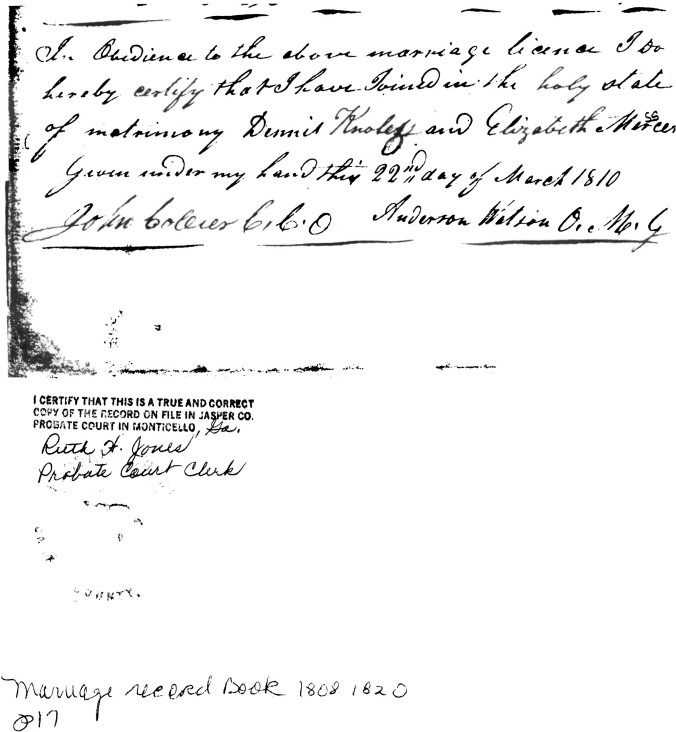 In Obedience to the above marriage licence I Do
hereby certify that I have Joined in the holy state
of matrimony Dennis and Elizabeth Mercer
Given under my hand this 22nd day of March 1810
John C.C.O Anderson Watson O. M. G
I CERTIFY THAT THIS IS A TRUE AND CORRECT
COPY OF THE RECORD ON FILE IN JASPER CO.
PROBATE COURT IN MONTICELLO, Ga.
Ruth H. Jones
Probate Court Clerk
COUNTY.
Marriage record Book 1808 1820
P17